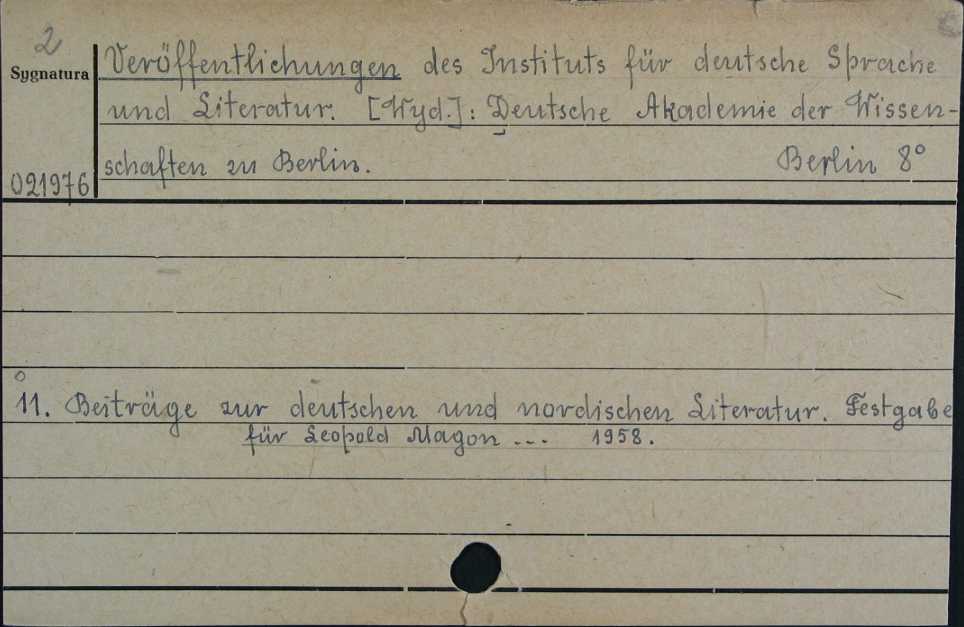 2
Sygnatura
021976
Veröffentlichungen des Instituts für deutsche Sprache
und Literatur. [Wyd.]: Deutsche Akademie der Wissen-
schaften zu Berlin. Berlin 8°
11. Beiträge zur deutschen und nordischen Literatur. Festgabe
für Leopold Magon ... 1958.